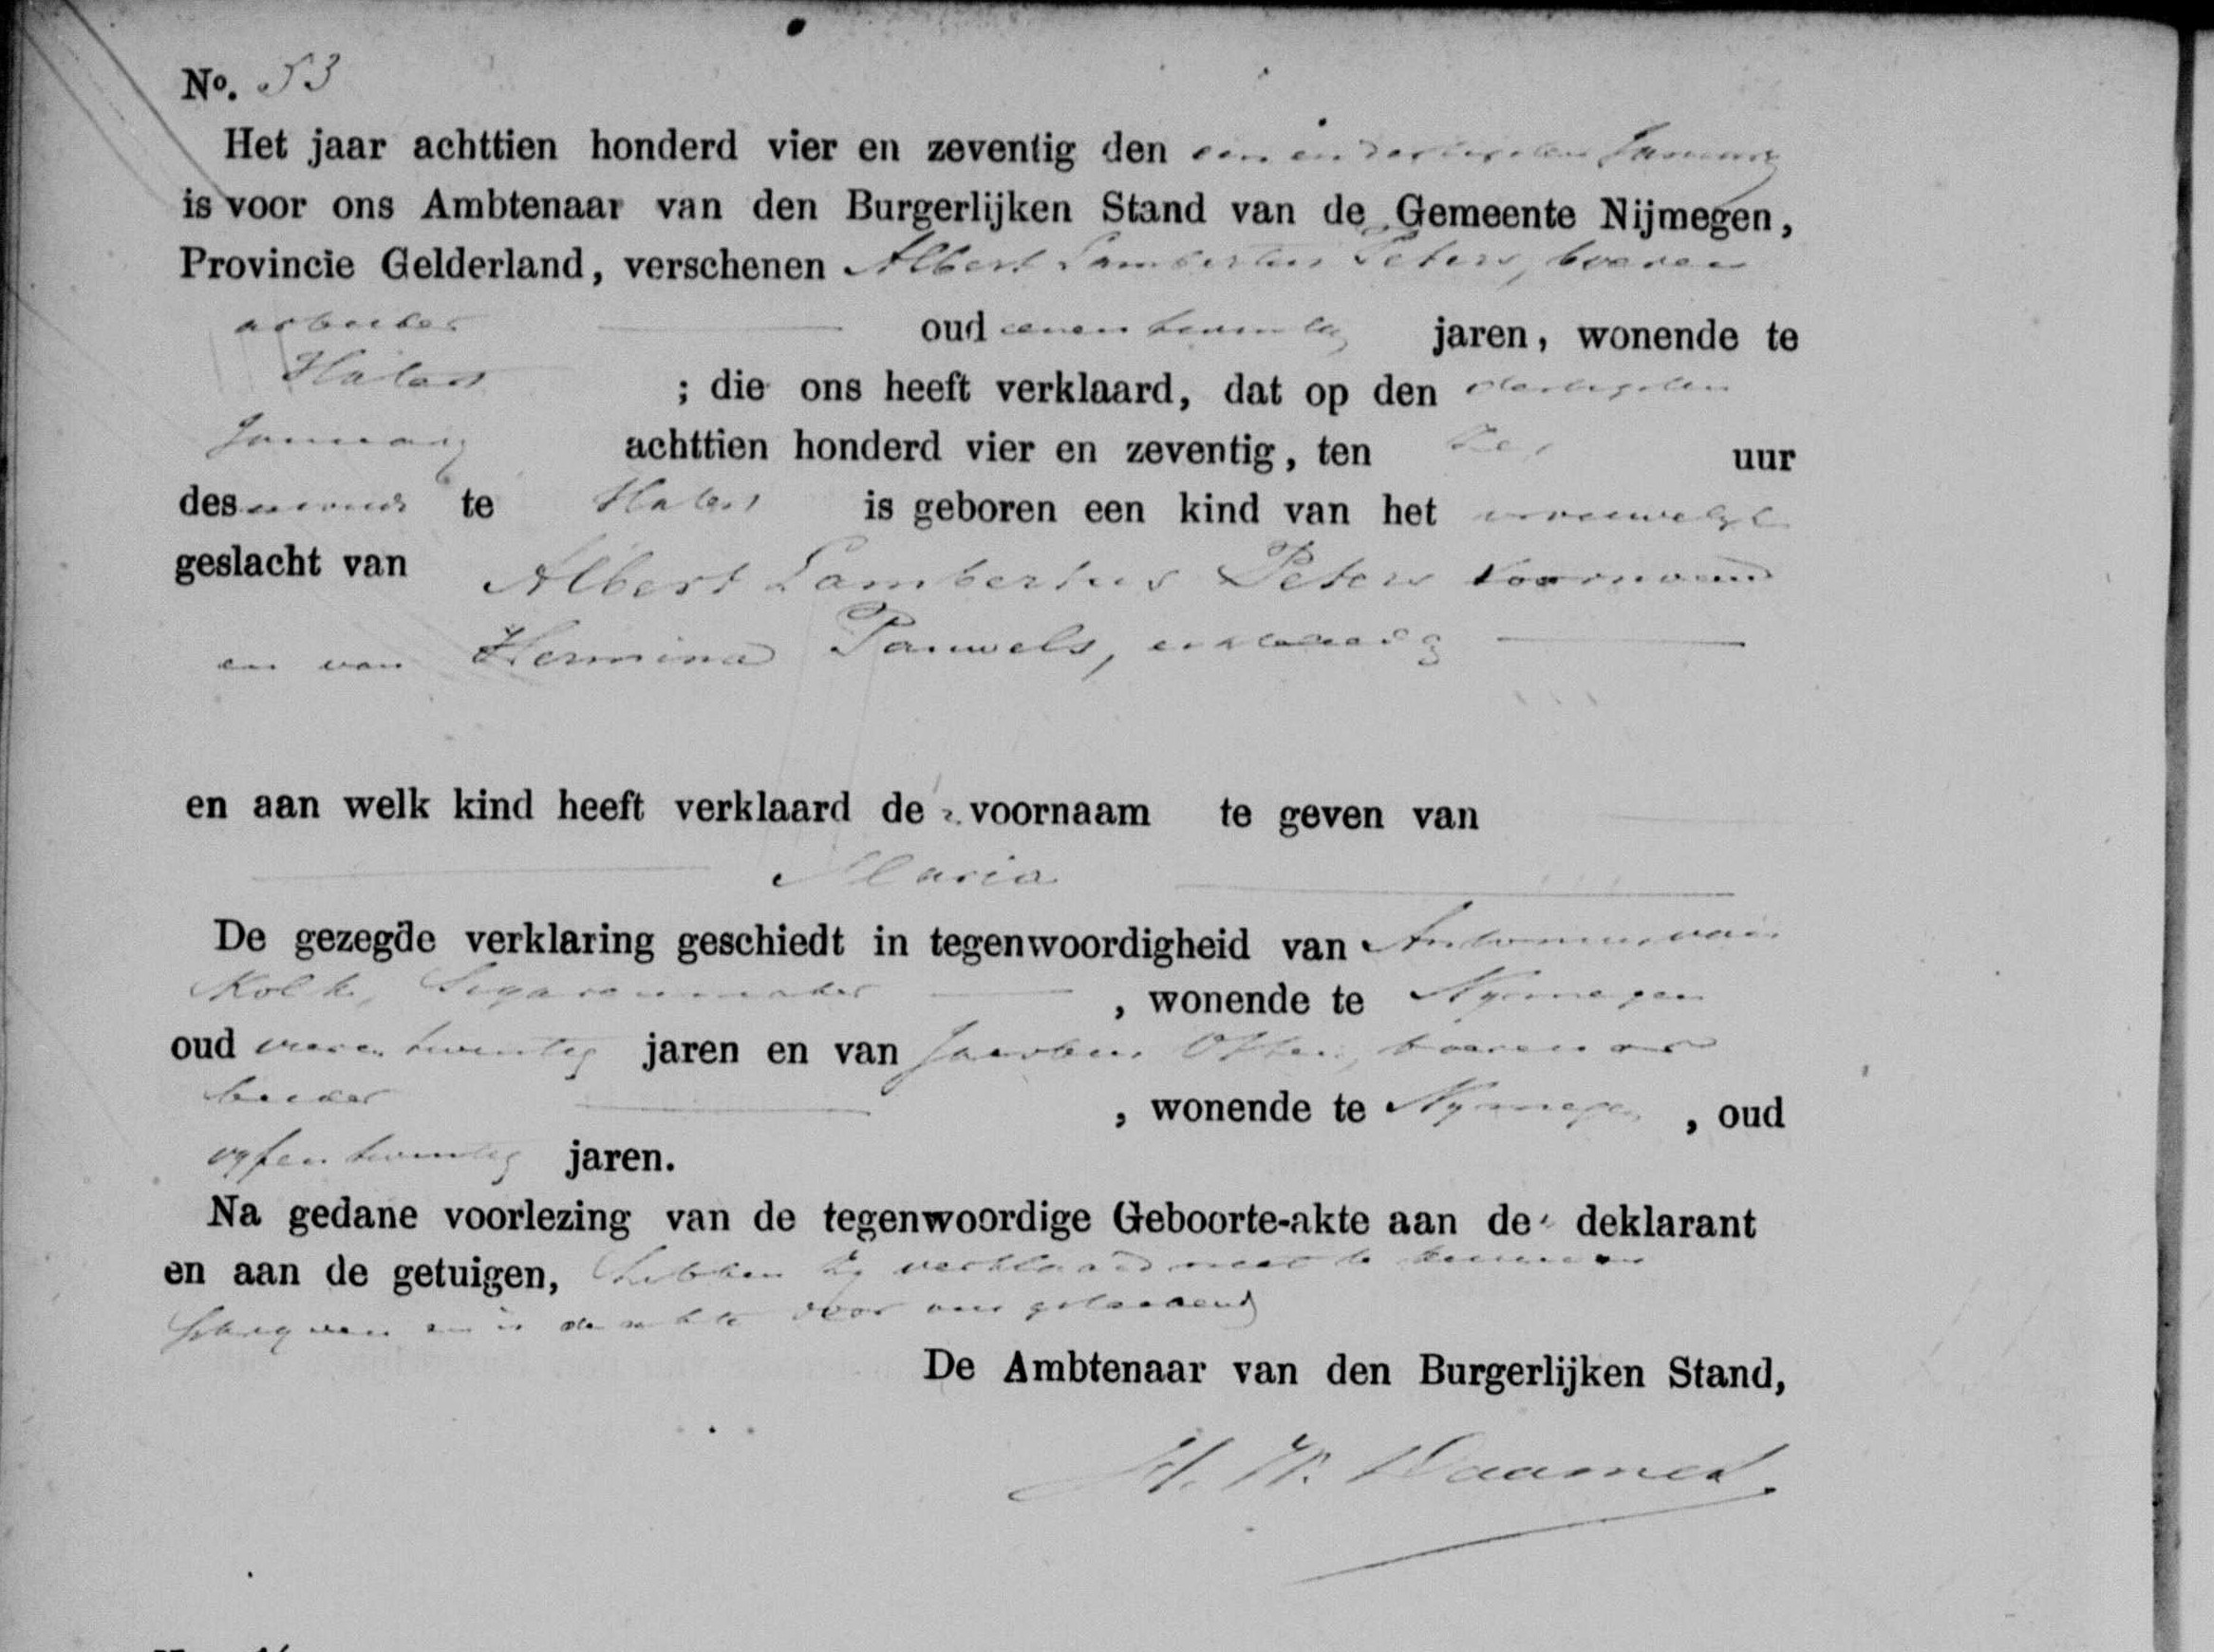 No. 53
Het jaar achttien honderd vier en zeventig den een en dertigsten January
is voor ons Ambtenaar van den Burgerlijken Stand van de Gemeente Nijmegen,
Provincie Gelderland, verschenen Albert Lambertus Peters, boeren
arbeider oud eenen twintig jaren, wonende te
Hatert ; die ons heeft verklaard, dat op den dertigsten
January achttien honderd vier en zeventig, ten zes uur
des avonds te Hatert is geboren een kind van het vrouwelyk
geslacht van Albert Lambertus Peters voornoemd
en van Hermina Pauwels,
en aan welk kind heeft verklaard de voornaam te geven van
Maria
De gezegde verklaring geschiedt in tegenwoordigheid van Antonius van
Kolk, Sigarenmaker , wonende te Nymegen
oud vieren twintig jaren en van Jacobus Otten, boeren ar
beider , wonende te Nymegen , oud
vyfen twintig jaren.
Na gedane voorlezing van de tegenwoordige Geboorte-akte aan de deklarant
en aan de getuigen, hebben zy verklaard niet te kunnen
schryven en is de akte door ons geteekend
De Ambtenaar van den Burgerlijken Stand,